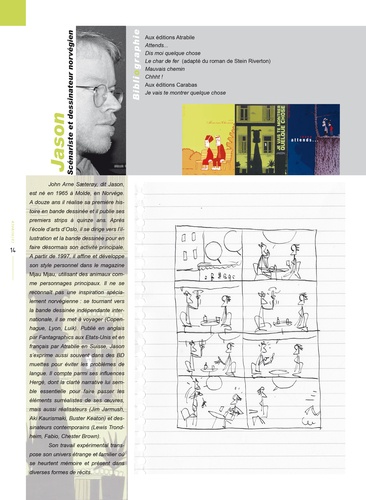 Jason
Scénariste et dessinateur norvégien
Bibliographie
Aux éditions Atrabile
Attends...
Dis moi quelque chose
Le char de fer (adapté du roman de Stein Riverton)
Mauvais chemin
Chhht !
Aux éditions Carabas
Je vais te montrer quelque chose
JE VAIS TE MONTRER
QUELQUE CHOSE
attends...
14
John Arne Sæterøy, dit Jason,
est né en 1965 à Molde, en Norvège.
A douze ans il réalise sa première his-
toire en bande dessinée et il publie ses
premiers strips à quinze ans. Après
l'école d'arts d'Oslo, il se dirige vers l'il-
lustration et la bande dessinée pour en
faire désormais son activité principale.
A partir de 1997, il affine et développe
son style personnel dans le magazine
Mjau Mjau, utilisant des animaux com-
me personnages principaux. Il ne se
reconnaît pas une inspiration spécia-
lement norvégienne : se tournant vers
la bande dessinée indépendante inter-
nationale, il se met à voyager (Copen-
hague, Lyon, Luik). Publié en anglais
par Fantagraphics aux Etats-Unis et en
français par Atrabile en Suisse, Jason
s'exprime aussi souvent dans des BD
muettes pour éviter les problèmes de
langue. Il compte parmi ses influences
Hergé, dont la clarté narrative lui sem-
ble essentielle pour faire passer les
éléments surréalistes de ses œuvres,
mais aussi réalisateurs (Jim Jarmush,
Aki Kaurismaki, Buster Keaton) et des-
sinateurs contemporains (Lewis Trond-
heim, Fabio, Chester Brown).
Son travail expérimental trans-
pose son univers étrange et familier où
se heurtent mémoire et présent dans
diverses formes de récits.